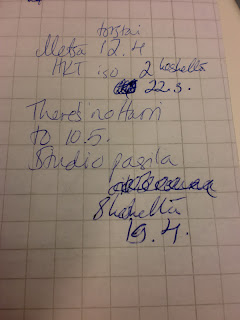 torstai
Metsä 12.4
HKT iso 2 hoshellä
22.3.
There's no Harri
to 10.5.
Studio pasila
8 hohellä
19.4.